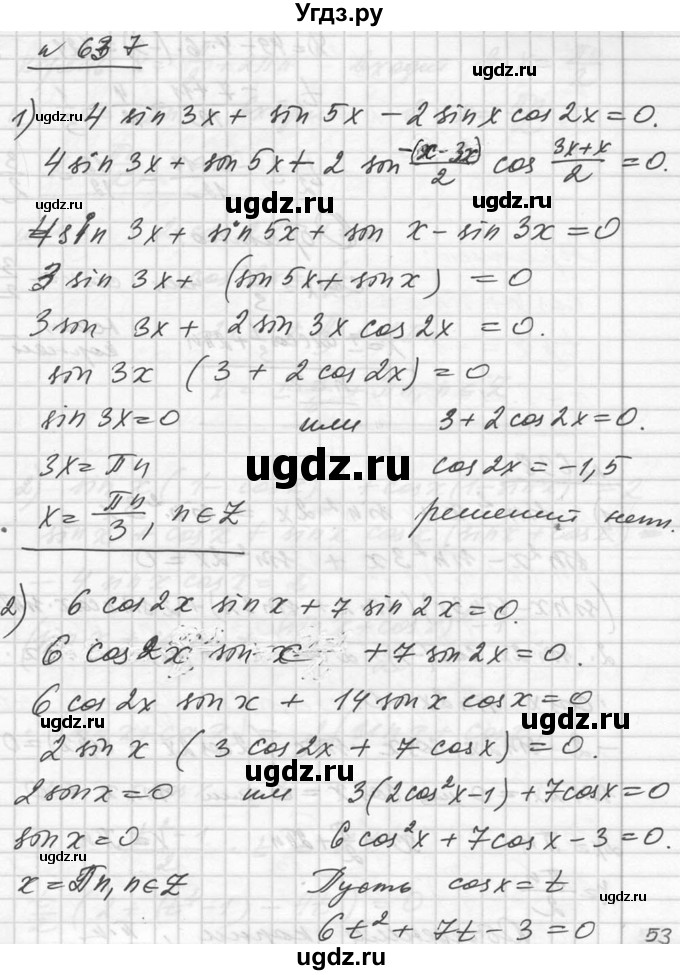 Угдз.ру
№ 637
ugdz.ru
1) 4 sin 3x + sin 5x − 2 sin x cos 2x = 0.
4 sin 3x + sin 5x + 2 sin −(x−3x)/2 cos (3x+x)/2 = 0.
ugdz.ru ugdz.ru ugdz.ru
4 sin 3x + sin 5x + sin x − sin 3x = 0
3 sin 3x + (sin 5x + sin x) = 0
ugdz.ru
3 sin 3x + 2 sin 3x cos 2x = 0.
sin 3x (3 + 2 cos 2x) = 0
ugdz.ru
sin 3x = 0 или 3 + 2 cos 2x = 0.
3x = πn cos 2x = −1,5
ugdz.ru ugdz.ru
x = πn/3, n ∈ Z решений нет.
ugdz.ru
2) 6 cos 2x sin x + 7 sin 2x = 0.
6 cos 2x sin x + 7 sin 2x = 0.
ugdz.ru
6 cos 2x sin x + 14 sin x cos x = 0
ugdz.ru
2 sin x (3 cos 2x + 7 cos x) = 0.
ugdz.ru
2 sin x = 0 или 3(2cos²x−1) + 7cos x = 0
sin x = 0 6 cos²x + 7 cos x − 3 = 0.
ugdz.ru
x = πn, n ∈ Z Пусть cos x = t
ugdz.ru
6t² + 7t − 3 = 0
53
ugdz.ru